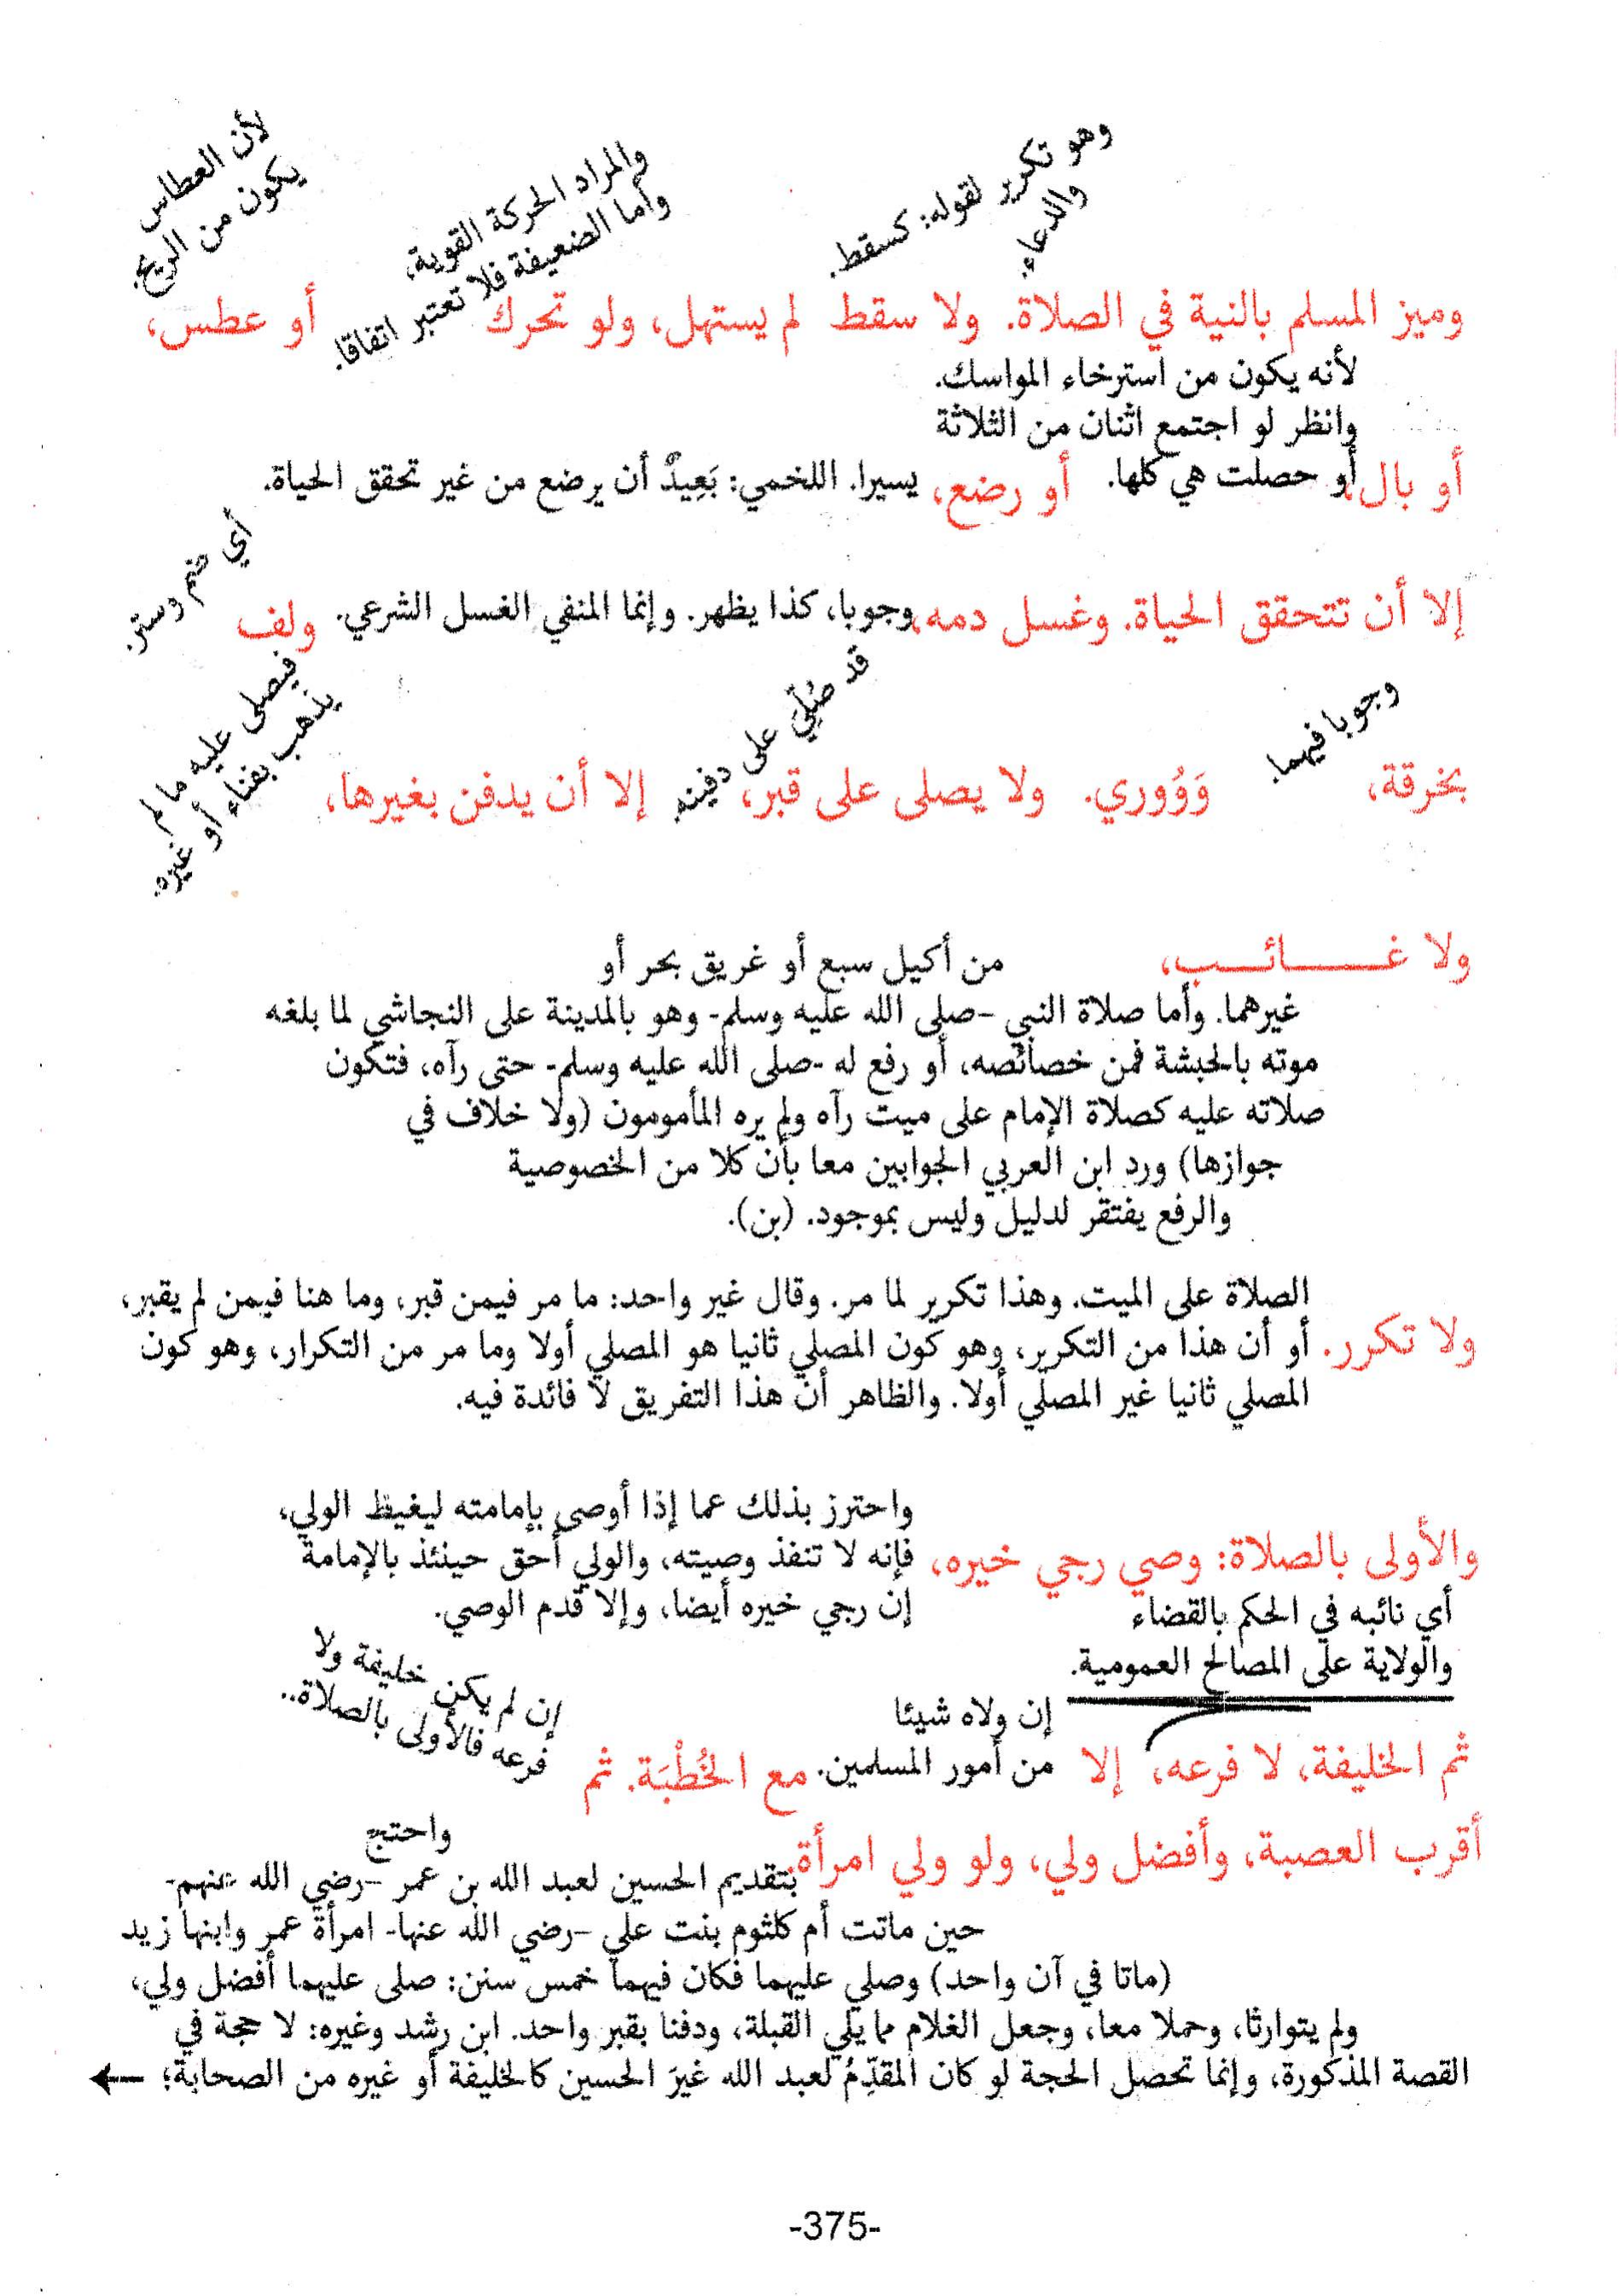 وهو تكرير لقوله: كسقط.
والدعاء.
والمراد الحركة القوية،
وأما الضعيفة فلا تعتبر اتفاقا.
لأن العطاس
يكون من الريح.
وميز المسلم بالنية في الصلاة. ولا سقط لم يستهل، ولو تحرك أو عطس،
لأنه يكون من استرخاء المواسك.
وانظر لو اجتمع اثنان من الثلاثة
أو بال، أو حصلت هي كلها. أو رضع، يسيرا. اللخمي: بَعِيدٌ أن يرضع من غير تحقق الحياة.
إلا أن تتحقق الحياة. وغسل دمه، وجوبا، كذا يظهر. وإنما المنفي الغسل الشرعي. ولف
أي ضم وستر.
وجوبا فيهما.
قد صُلِّيَ على دفينه.
فيصلى عليه ما لم
يذهب بفناء أو غيره.
بخرقة، وَوُوري. ولا يصلى على قبر، إلا أن يدفن بغيرها،
ولا غـــــائـــب، من أكيل سبع أو غريق بحر أو
غيرهما. وأما صلاة النبي -صلى الله عليه وسلم- وهو بالمدينة على النجاشي لما بلغه
موته بالحبشة فمن خصائصه، أو رفع له -صلى الله عليه وسلم- حتى رآه، فتكون
صلاته عليه كصلاة الإمام على ميت رآه ولم يره المأمومون (ولا خلاف في
جوازها) ورد ابن العربي الجوابين معا بأن كلا من الخصوصية
والرفع يفتقر لدليل وليس بموجود. (بن).
الصلاة على الميت. وهذا تكرير لما مر. وقال غير واحد: ما مر فيمن قبر، وما هنا فيمن لم يقبر،
ولا تكرر. أو أن هذا من التكرير، وهو كون المصلي ثانيا هو المصلي أولا وما مر من التكرار، وهو كون
المصلي ثانيا غير المصلي أولا. والظاهر أن هذا التفريق لا فائدة فيه.
واحترز بذلك عما إذا أوصى بإمامته ليغيظ الولي،
والأولى بالصلاة: وصي رجي خيره، فإنه لا تنفذ وصيته، والولي أحق حينئذ بالإمامة
إن رجي خيره أيضا، وإلا قدم الوصي.
أي نائبه في الحكم بالقضاء
والولاية على المصالح العمومية.
إن ولاه شيئا
من أمور المسلمين.
إن لم يكن خليفة ولا
فرعه فالأولى بالصلاة..
ثم الخليفة، لا فرعه، إلا مع الخُطْبَة. ثم
أقرب العصبة، وأفضل ولي، ولو ولي امرأة. واحتج
بتقديم الحسين لعبد الله بن عمر -رضي الله عنهم-
حين ماتت أم كلثوم بنت علي -رضي الله عنها- امرأة عمر وابنها زيد
(ماتا في آن واحد) وصلي عليهما فكان فيهما خمس سنن: صلى عليهما أفضل ولي،
ولم يتوارثا، وحملا معا، وجعل الغلام مما يلي القبلة، ودفنا بقبر واحد. ابن رشد وغيره: لا حجة في
القصة المذكورة، وإنما تحصل الحجة لو كان المقدِّمُ لعبد الله غيرَ الحسين كالخليفة أو غيره من الصحابة؛ ←
-375-